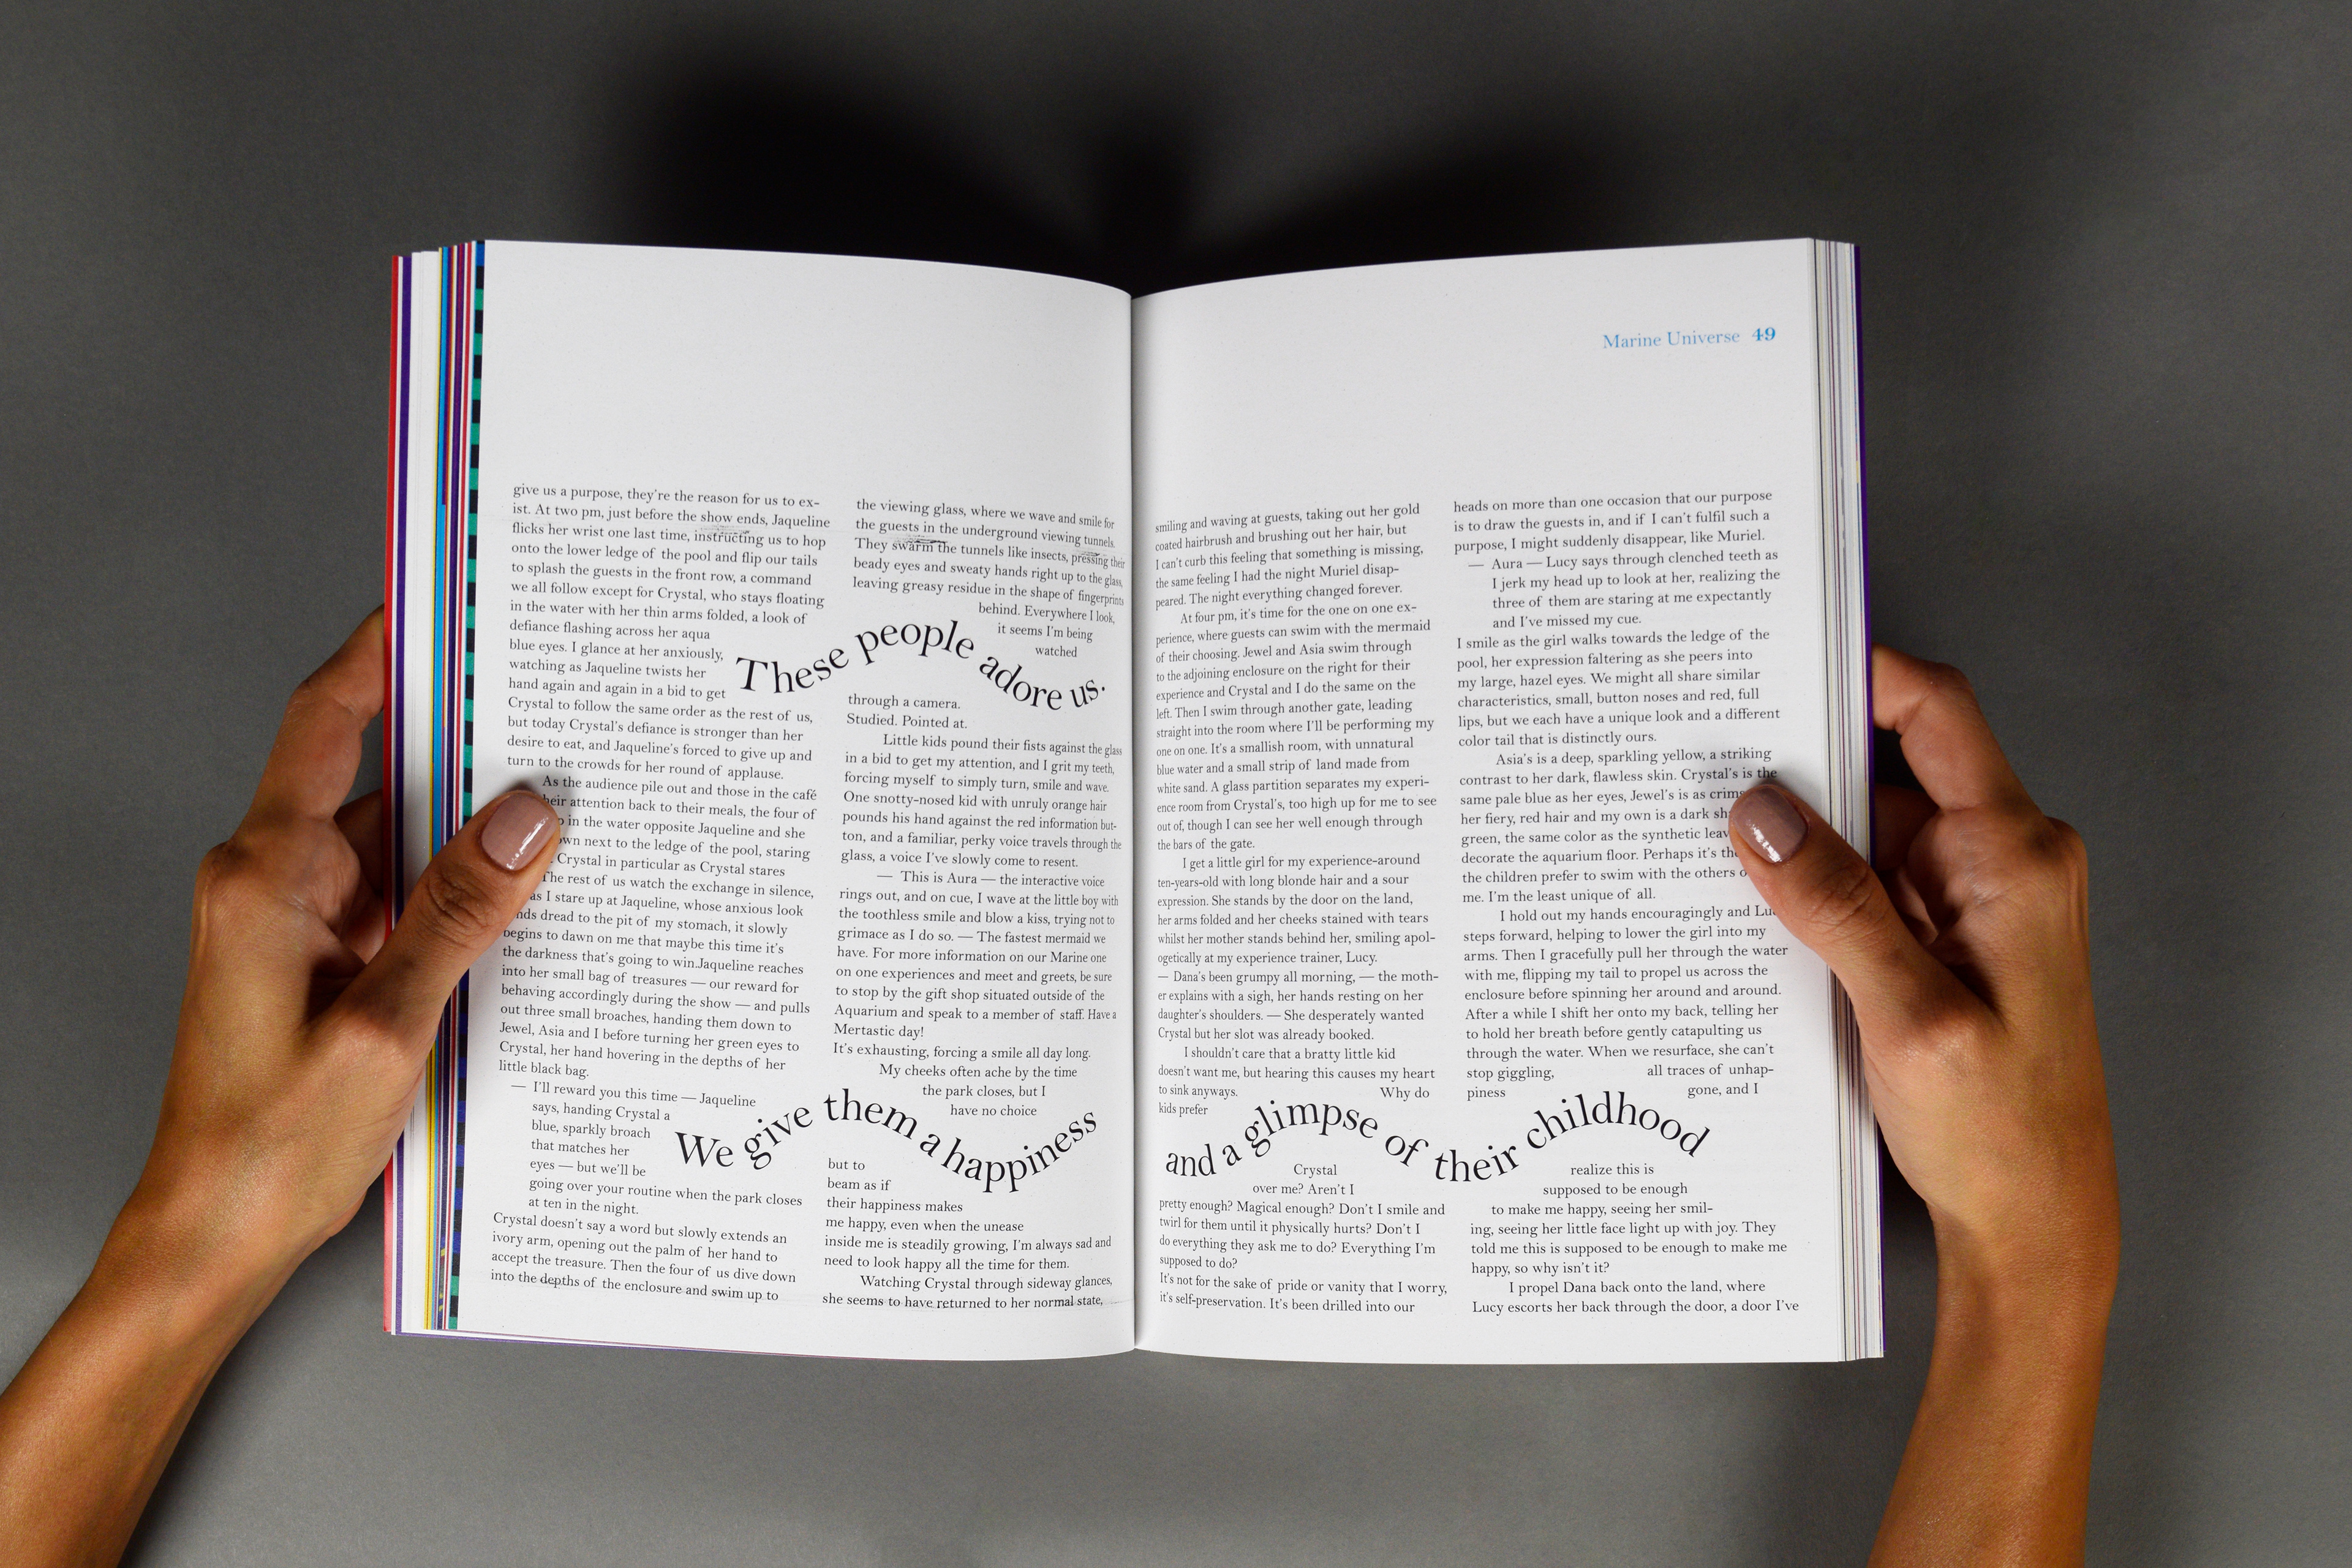 give us a purpose, they're the reason for us to ex-
ist. At two pm, just before the show ends, Jaqueline
flicks her wrist one last time, instructing us to hop
onto the lower ledge of the pool and flip our tails
to splash the guests in the front row, a command
we all follow except for Crystal, who stays floating
in the water with her thin arms folded, a look of
defiance flashing across her aqua
blue eyes. I glance at her anxiously,
watching as Jaqueline twists her
hand again and again in a bid to get
Crystal to follow the same order as the rest of us,
but today Crystal's defiance is stronger than her
desire to eat, and Jaqueline's forced to give up and
turn to the crowds for her round of applause.
As the audience pile out and those in the café
attention back to their meals, the four of
in the water opposite Jaqueline and she
next to the ledge of the pool, staring
Crystal in particular as Crystal stares
The rest of us watch the exchange in silence,
as I stare up at Jaqueline, whose anxious look
dread to the pit of my stomach, it slowly
begins to dawn on me that maybe this time it's
the darkness that's going to win.Jaqueline reaches
into her small bag of treasures — our reward for
behaving accordingly during the show — and pulls
out three small broaches, handing them down to
Jewel, Asia and I before turning her green eyes to
Crystal, her hand hovering in the depths of her
little black bag.
— I'll reward you this time — Jaqueline
says, handing Crystal a
blue, sparkly broach
that matches her
eyes — but we'll be
going over your routine when the park closes
at ten in the night.
Crystal doesn't say a word but slowly extends an
ivory arm, opening out the palm of her hand to
accept the treasure. Then the four of us dive down
into the depths of the enclosure and swim up to
the viewing glass, where we wave and smile for
the guests in the underground viewing tunnels.
They swarm the tunnels like insects, pressing their
beady eyes and sweaty hands right up to the glass,
leaving greasy residue in the shape of fingerprints
behind. Everywhere I look,
it seems I'm being
watched
These people adore us.
through a camera.
Studied. Pointed at.
Little kids pound their fists against the glass
in a bid to get my attention, and I grit my teeth,
forcing myself to simply turn, smile and wave.
One snotty-nosed kid with unruly orange hair
pounds his hand against the red information but-
ton, and a familiar, perky voice travels through the
glass, a voice I've slowly come to resent.
— This is Aura — the interactive voice
rings out, and on cue, I wave at the little boy with
the toothless smile and blow a kiss, trying not to
grimace as I do so. — The fastest mermaid we
have. For more information on our Marine one
on one experiences and meet and greets, be sure
to stop by the gift shop situated outside of the
Aquarium and speak to a member of staff. Have a
Mertastic day!
It's exhausting, forcing a smile all day long.
My cheeks often ache by the time
the park closes, but I
have no choice
We give them a happiness
but to
beam as if
their happiness makes
me happy, even when the unease
inside me is steadily growing, I'm always sad and
need to look happy all the time for them.
Watching Crystal through sideway glances,
she seems to have returned to her normal state,
Marine Universe 49
smiling and waving at guests, taking out her gold
coated hairbrush and brushing out her hair, but
I can't curb this feeling that something is missing,
the same feeling I had the night Muriel disap-
peared. The night everything changed forever.
At four pm, it's time for the one on one ex-
perience, where guests can swim with the mermaid
of their choosing. Jewel and Asia swim through
to the adjoining enclosure on the right for their
experience and Crystal and I do the same on the
left. Then I swim through another gate, leading
straight into the room where I'll be performing my
one on one. It's a smallish room, with unnatural
blue water and a small strip of land made from
white sand. A glass partition separates my experi-
ence room from Crystal's, too high up for me to see
out of, though I can see her well enough through
the bars of the gate.
I get a little girl for my experience-around
ten-years-old with long blonde hair and a sour
expression. She stands by the door on the land,
her arms folded and her cheeks stained with tears
whilst her mother stands behind her, smiling apol-
ogetically at my experience trainer, Lucy.
— Dana's been grumpy all morning, — the moth-
er explains with a sigh, her hands resting on her
daughter's shoulders. — She desperately wanted
Crystal but her slot was already booked.
I shouldn't care that a bratty little kid
doesn't want me, but hearing this causes my heart
to sink anyways. Why do
kids prefer
and a glimpse of their childhood
Crystal
over me? Aren't I
pretty enough? Magical enough? Don't I smile and
twirl for them until it physically hurts? Don't I
do everything they ask me to do? Everything I'm
supposed to do?
It's not for the sake of pride or vanity that I worry,
it's self-preservation. It's been drilled into our
heads on more than one occasion that our purpose
is to draw the guests in, and if I can't fulfil such a
purpose, I might suddenly disappear, like Muriel.
— Aura — Lucy says through clenched teeth as
I jerk my head up to look at her, realizing the
three of them are staring at me expectantly
and I've missed my cue.
I smile as the girl walks towards the ledge of the
pool, her expression faltering as she peers into
my large, hazel eyes. We might all share similar
characteristics, small, button noses and red, full
lips, but we each have a unique look and a different
color tail that is distinctly ours.
Asia's is a deep, sparkling yellow, a striking
contrast to her dark, flawless skin. Crystal's is the
same pale blue as her eyes, Jewel's is as
her fiery, red hair and my own is a dark
green, the same color as the synthetic
decorate the aquarium floor. Perhaps it's
the children prefer to swim with the others
me. I'm the least unique of all.
I hold out my hands encouragingly and
steps forward, helping to lower the girl into my
arms. Then I gracefully pull her through the water
with me, flipping my tail to propel us across the
enclosure before spinning her around and around.
After a while I shift her onto my back, telling her
to hold her breath before gently catapulting us
through the water. When we resurface, she can't
stop giggling, all traces of unhap-
piness gone, and I
realize this is
supposed to be enough
to make me happy, seeing her smil-
ing, seeing her little face light up with joy. They
told me this is supposed to be enough to make me
happy, so why isn't it?
I propel Dana back onto the land, where
Lucy escorts her back through the door, a door I've